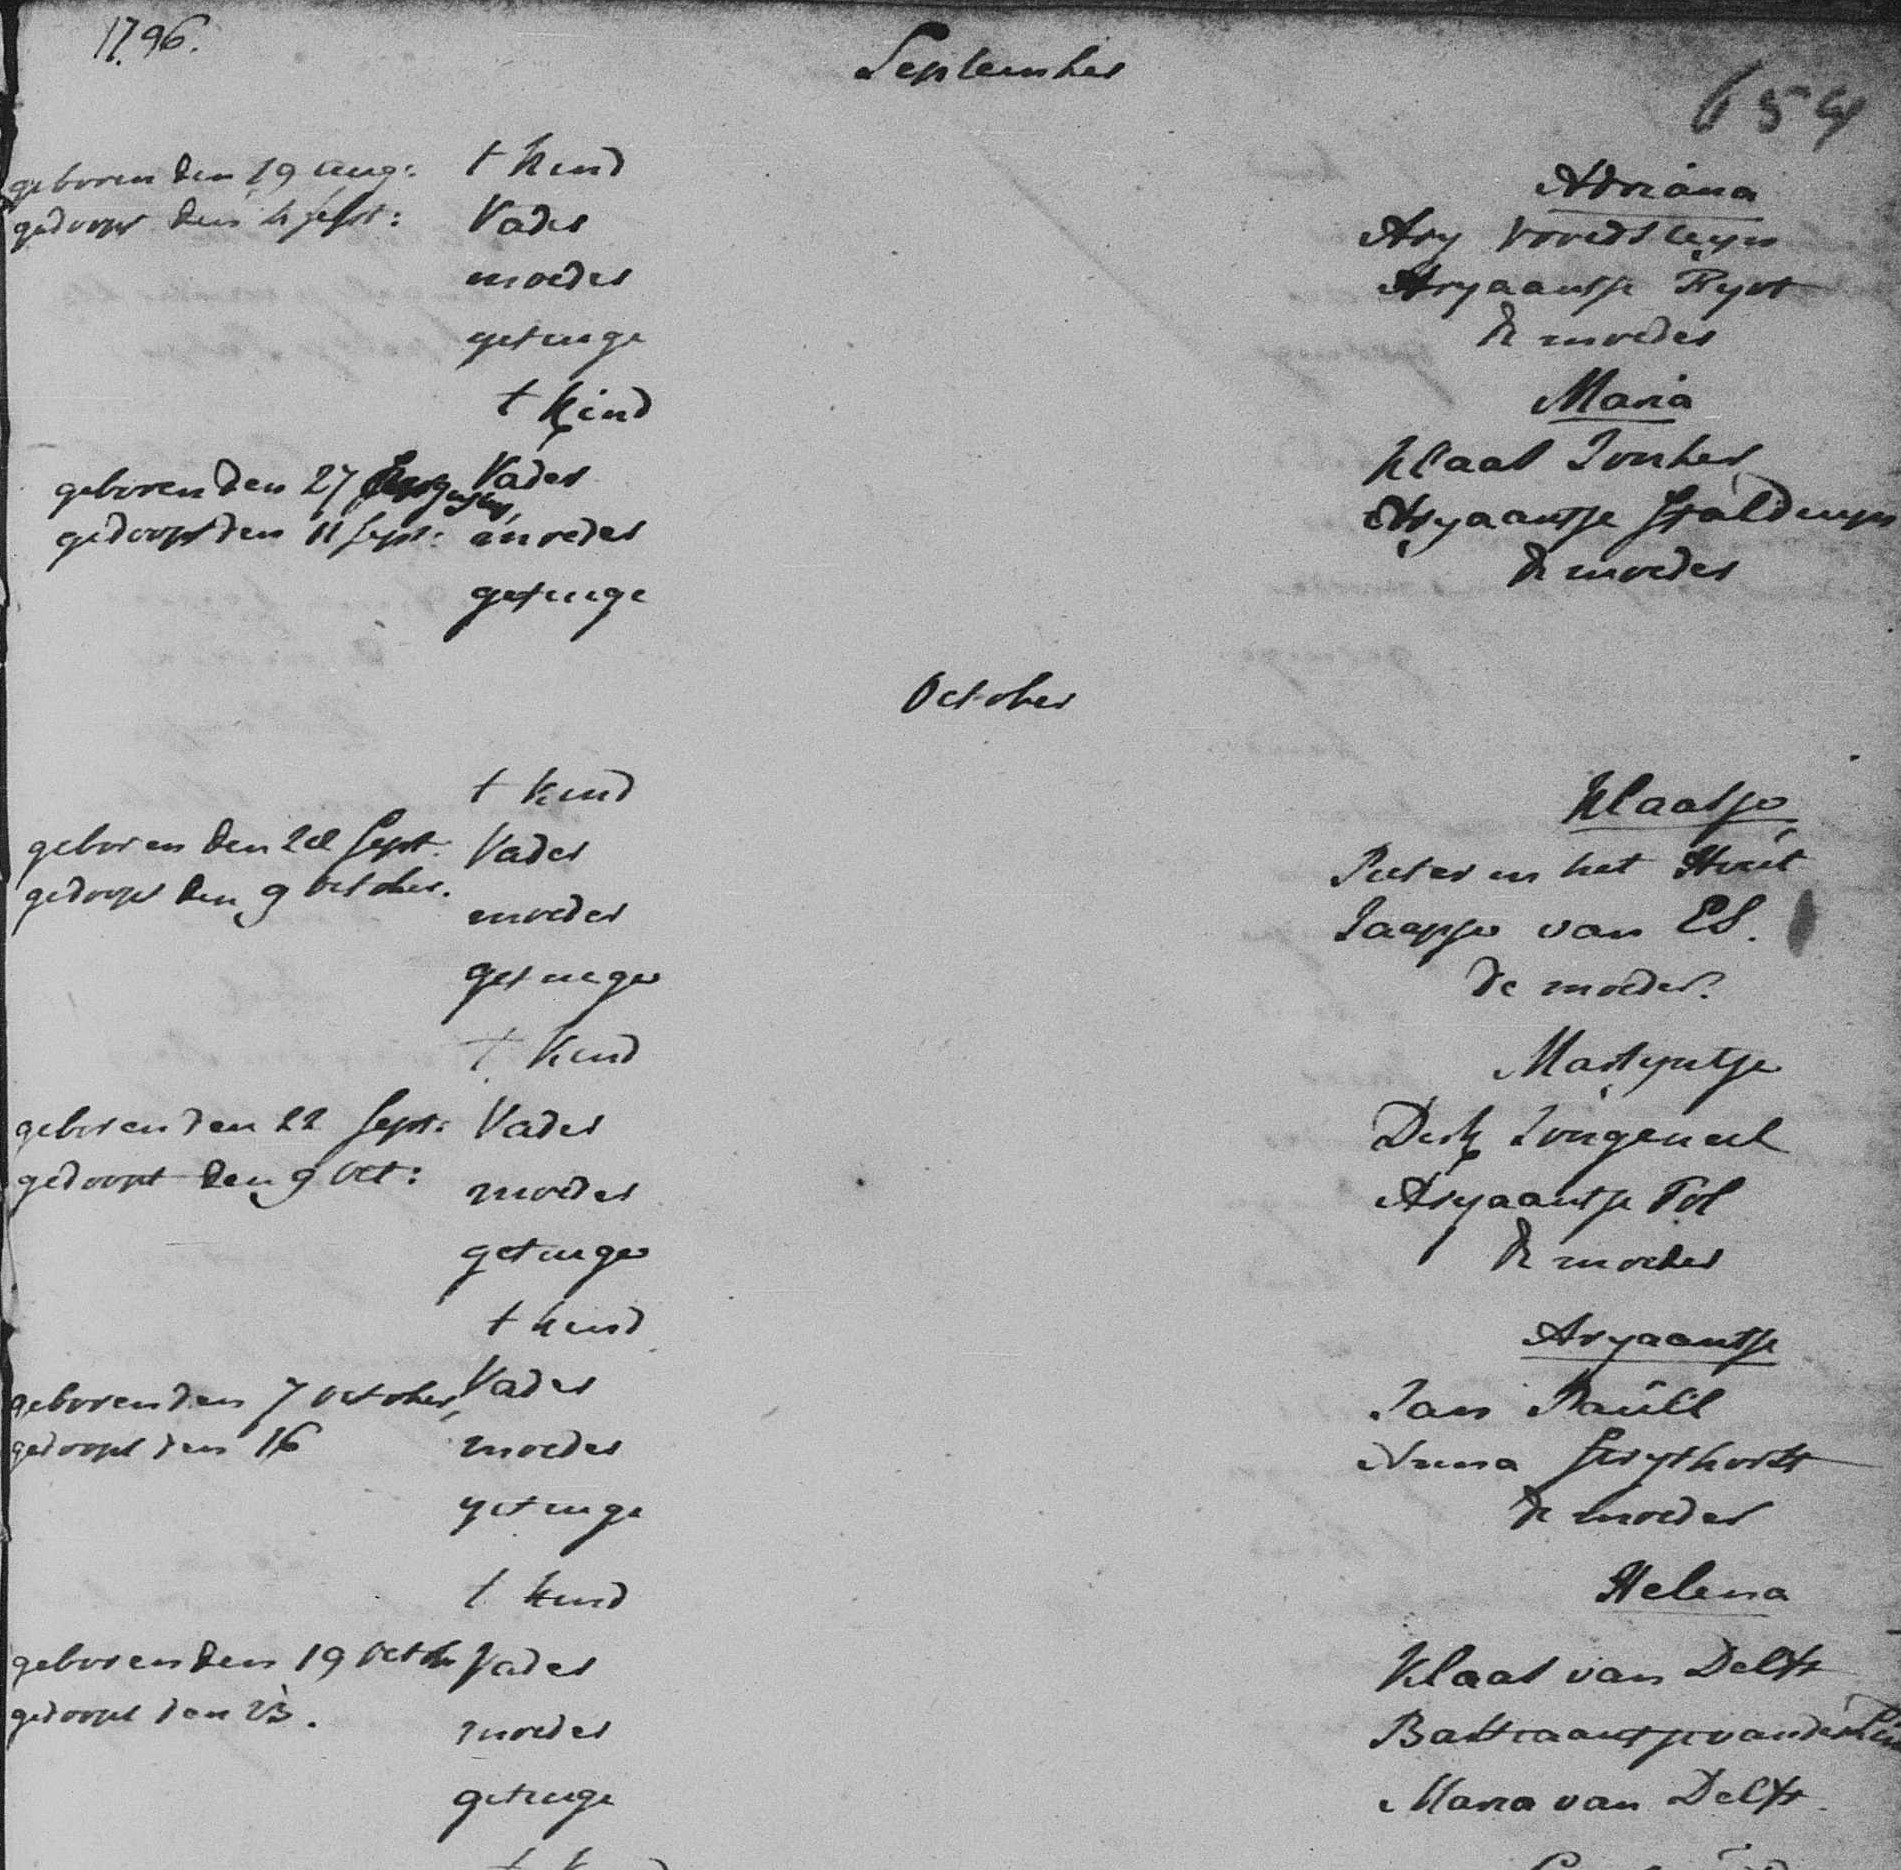 1796.
September
659
geboren den 19 aug:
gedoopt den 4 sept:
t kind Adriana
Vader Ary
moeder Aryaantje
getuige de moeder
t kind Maria
geboren den 27
gedoopt den 11 sept:
Vader Klaas Jonker
moeder Aryaantje
getuige de moeder
October
t kind Klaasje
geboren den 28 Sept.
gedoopt den 9 October.
Vader Pieter in het Hout
moeder Jaapje van Es.
getuige de moeder.
t kind Martyntje
geboren den 22 sept:
gedoopt den 9 Oct:
Vader Dirk Jongeneel
moeder Aryaantje Tol
getuige de moeder
t kind Aryaantje
geboren den 7 october,
gedoopt den 16
Vader Jan
moeder Anna
getuige de moeder
t kind Helena
geboren den 19 Octob
gedoopt den 23.
Vader Klaas van Delft
moeder Bastiaantje van der
getuige Maria van Delft